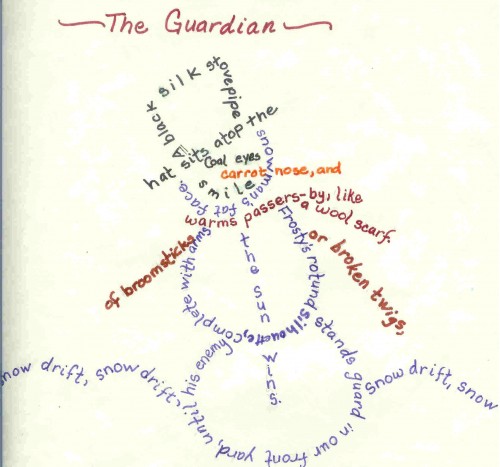 The Guardian
A black silk stovepipe
hat sits atop the
snowman's fat face.
Coal eyes
carrot nose, and
smile
warms passers-by, like
a wool scarf.
Frosty's rotund silhouette, complete with arms
of broomsticks
or broken twigs,
stands guard in our front yard, until his enemy
the sun
wins.
now drift, snow drift,
Snow drift, snow